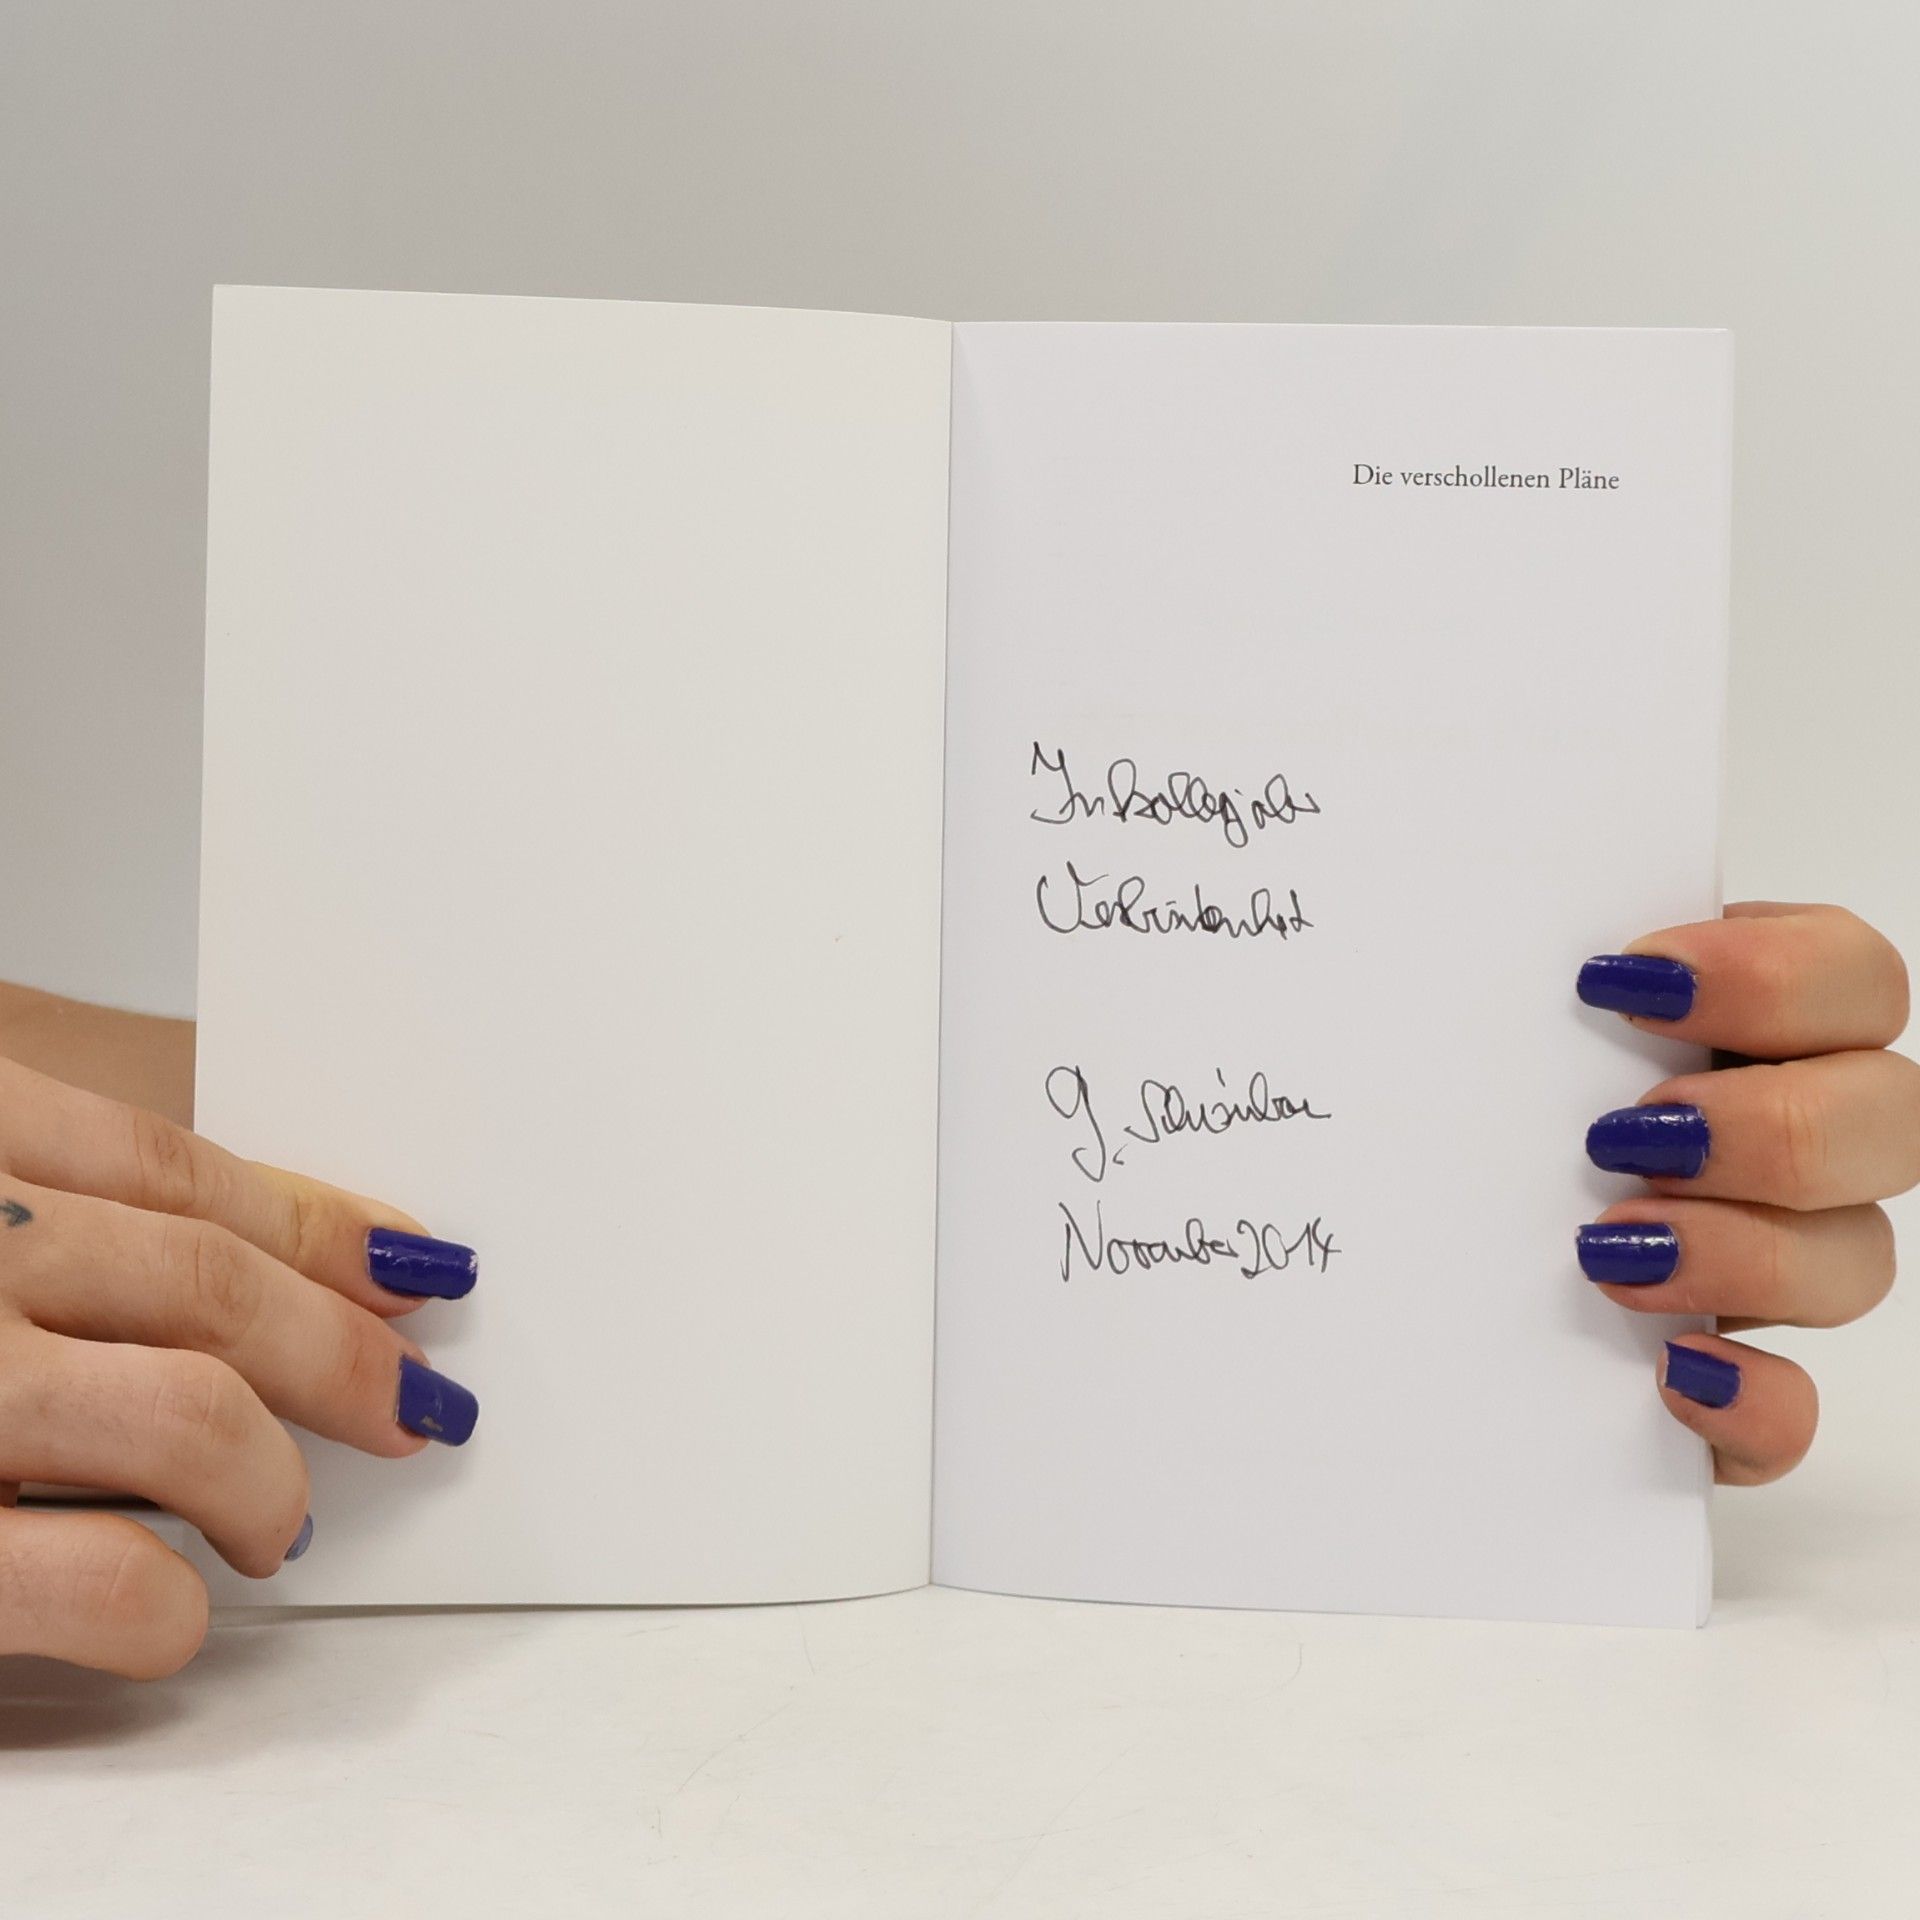 Die verschollenen Pläne
In kollegialer
Verbundenheit
G.
November 2014